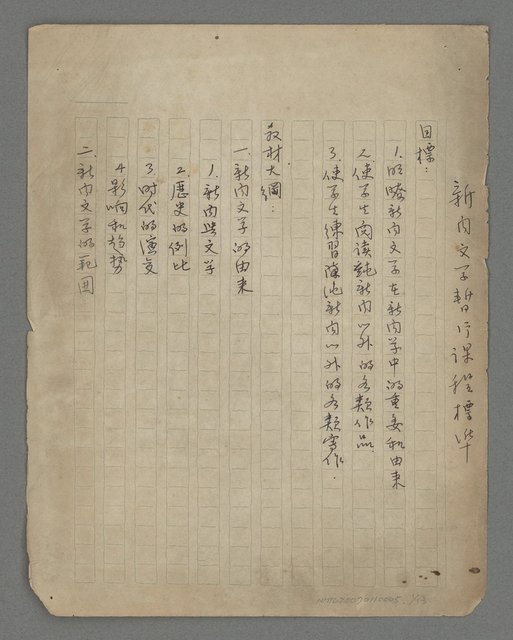 新闻文学暫行课程標準
目標：
1. 明瞭新闻文学在新闻学中的重要和由来
2. 使学生阅读纯新闻以外的各類作品.
3. 使学生練習除純新闻以外的各類寫作.
教材大綱：
一. 新闻文学的由来
1. 新闻与文学
2. 歷史的例比
3. 时代的演变
4. 影响和趋势
二. 新闻文学的範圍